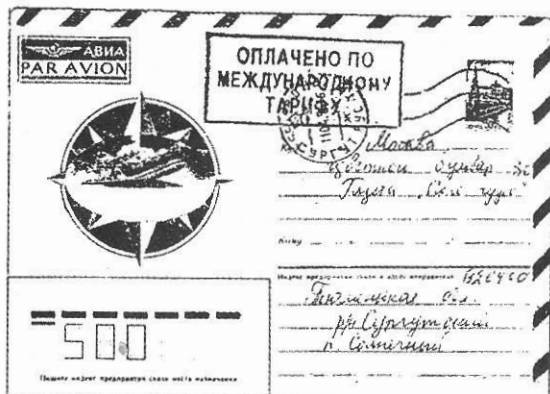 АВИА
PAR AVION
ОПЛАЧЕНО ПО
МЕЖДУНАРОДНОМУ
ТАРИФУ
СУРГУТ
Москва
бульвар
Газета
Кому
Индекс предприятия связи и адрес отправителя
Тюменская обл.
р-н Сургутский
п Солнечный
50.0
Пишите индекс предприятия связи места назначения